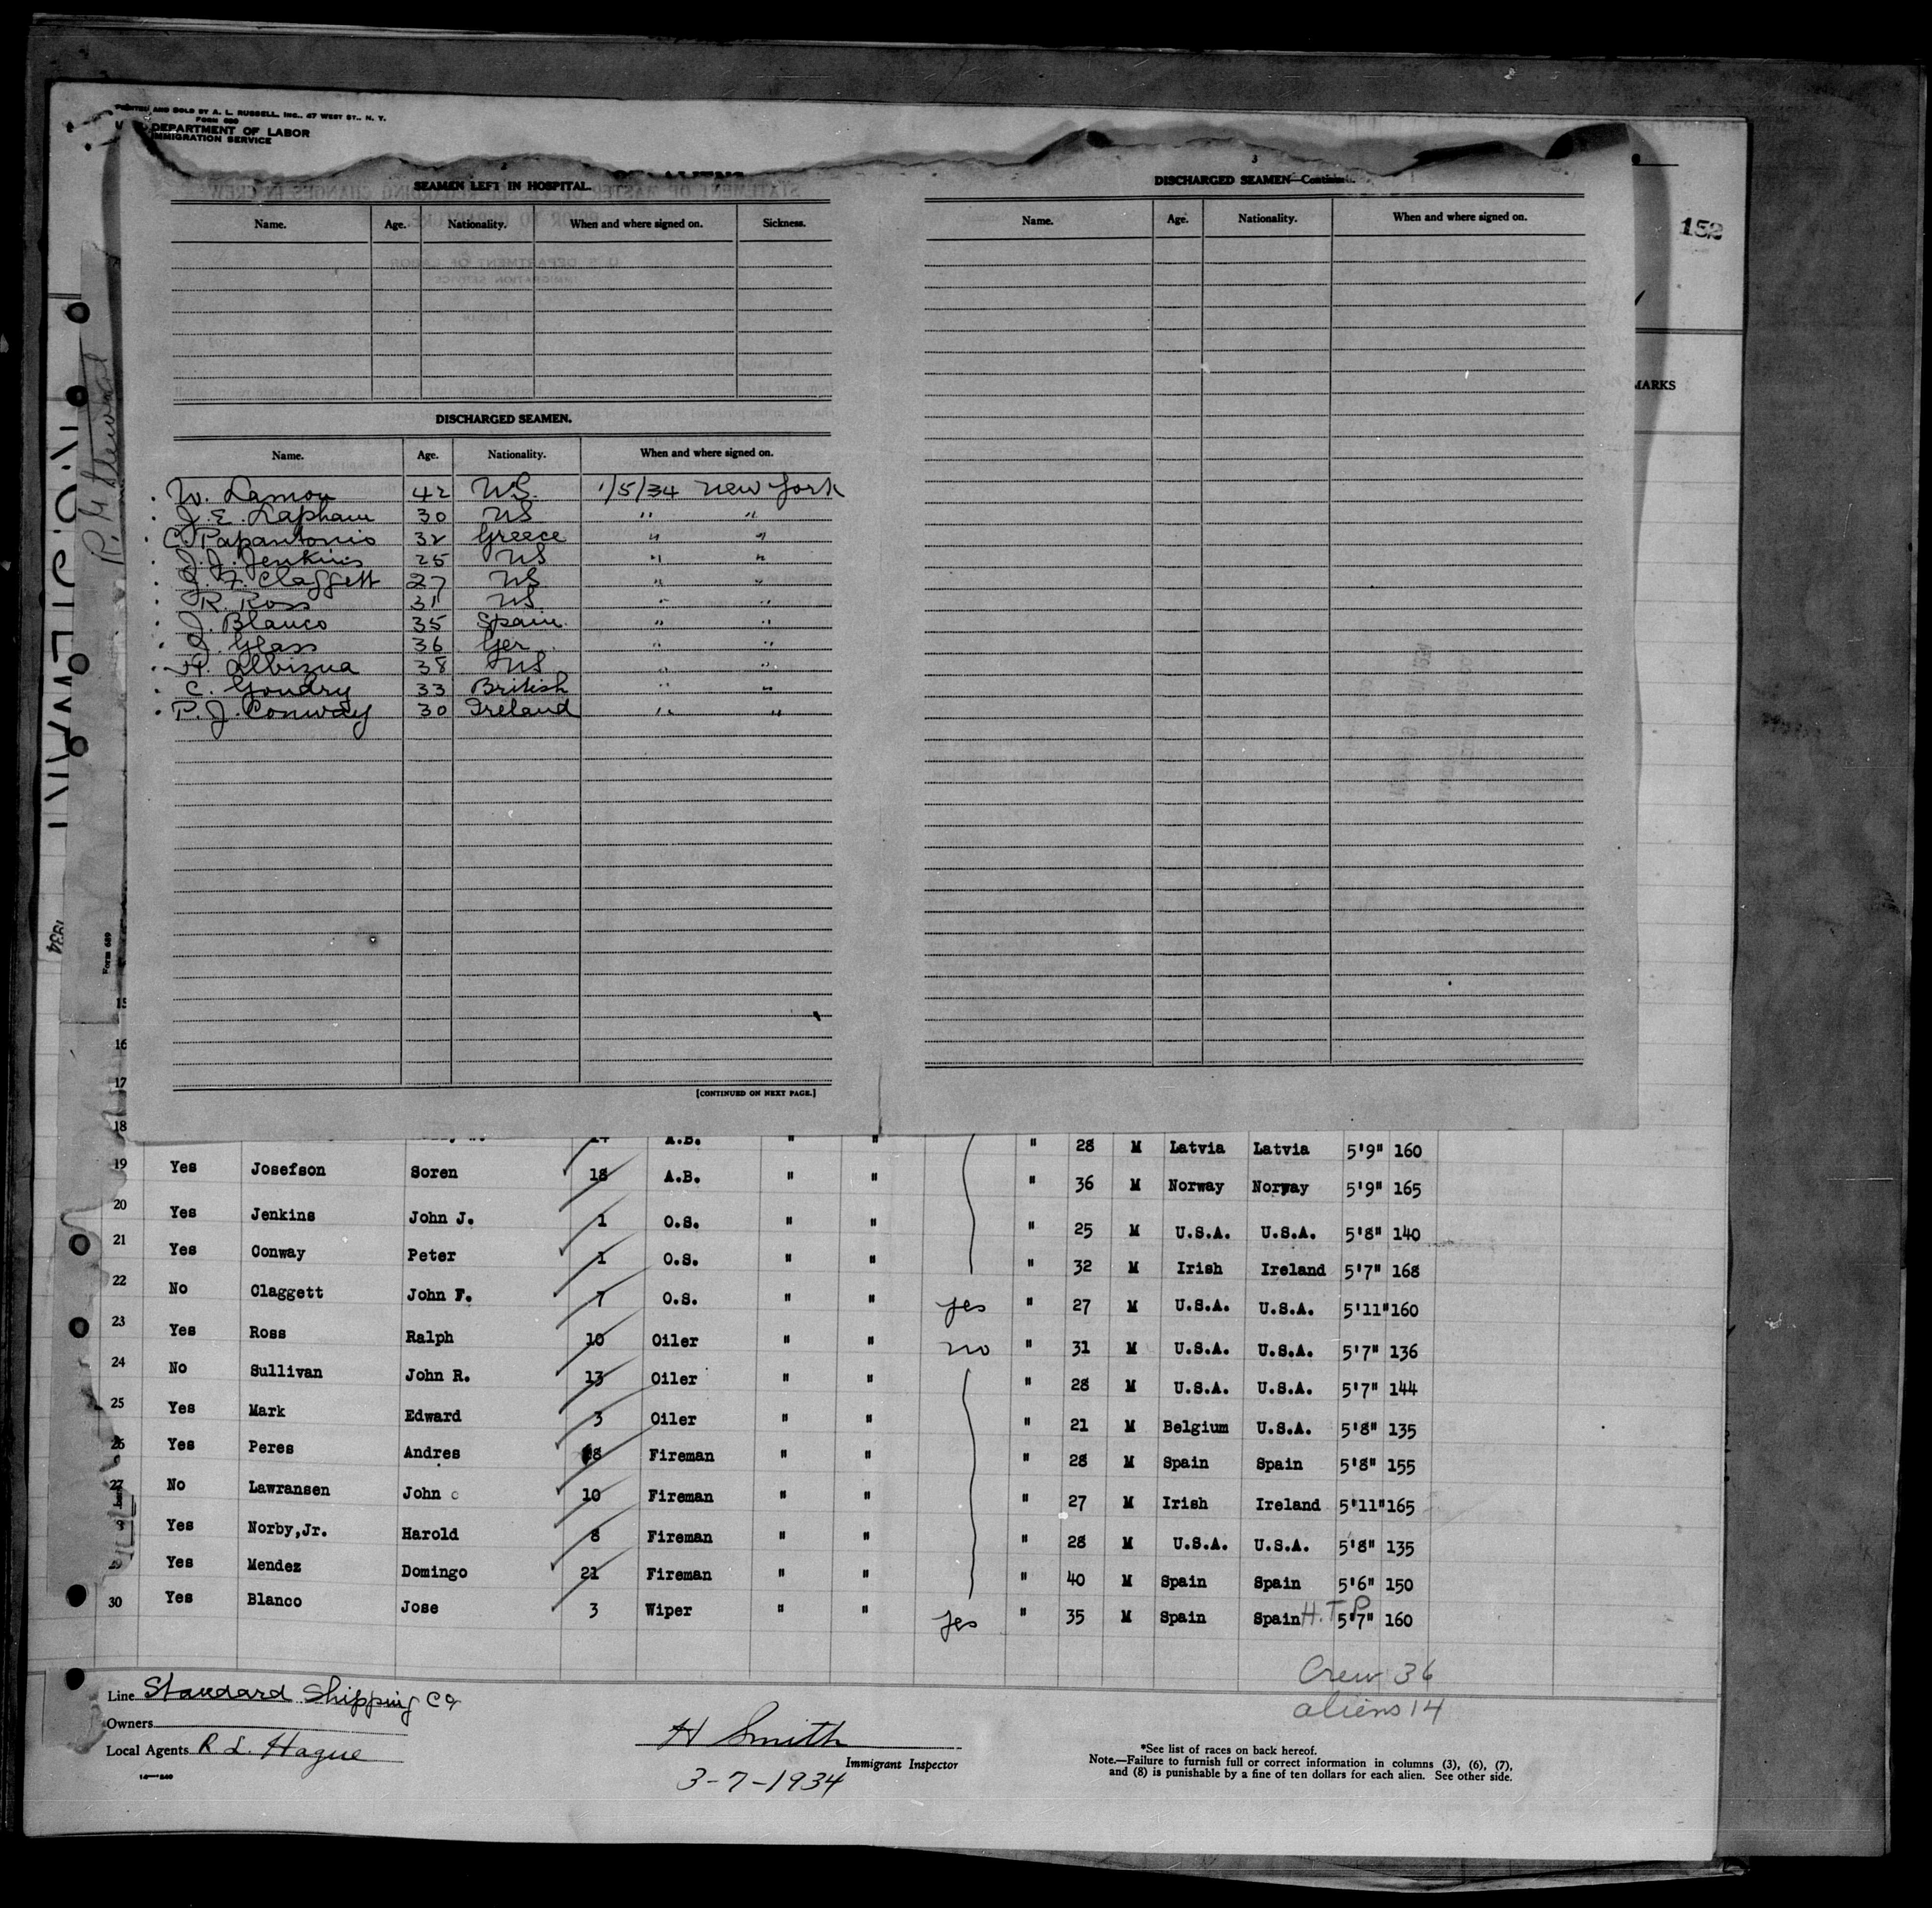 PRINTED AND SOLD BY A. L. RUSSELL, INC., 47 WEST ST., N. Y.
FORM 680
DEPARTMENT OF LABOR
IMMIGRATION SERVICE
152
MARKS
R. M. Steward
1934
Form 689
2
SEAMEN LEFT IN HOSPITAL.
Name. Age. Nationality. When and where signed on. Sickness.
DISCHARGED SEAMEN.
Name. Age. Nationality. When and where signed on.
W. Lamon 42 US. 1/5/34 New York
J. E. Lapham 30 US " "
C. Papantonis 32 Greece " "
J. J. Jenkins 25 US " "
J. F. Claggett 27 US " "
R. Ross 31 US " "
J. Blanco 35 Spain. " "
J. Glass 36 Ger. " "
H. Albizua 38 US " "
C. Goudry 33 British " "
P. J. Conway 30 Ireland " "
[CONTINUED ON NEXT PAGE.]
3
DISCHARGED SEAMEN—Continued.
Name. Age. Nationality. When and where signed on.
15
16
17
18 14 A.B. " " " 28 M Latvia Latvia 5'9" 160
19 Yes Josefson Soren 18 A.B. " " " 36 M Norway Norway 5'9" 165
20 Yes Jenkins John J. 1 O.S. " " " 25 M U.S.A. U.S.A. 5'8" 140
21 Yes Conway Peter 1 O.S. " " " 32 M Irish Ireland 5'7" 168
22 No Claggett John F. 7 O.S. " " yes " 27 M U.S.A. U.S.A. 5'11" 160
23 Yes Ross Ralph 10 Oiler " " no " 31 M U.S.A. U.S.A. 5'7" 136
24 No Sullivan John R. 13 Oiler " " " 28 M U.S.A. U.S.A. 5'7" 144
25 Yes Mark Edward 3 Oiler " " " 21 M Belgium U.S.A. 5'8" 135
26 Yes Peres Andres 8 Fireman " " " 28 M Spain Spain 5'8" 155
27 No Lawransen John 10 Fireman " " " 27 M Irish Ireland 5'11" 165
Yes Norby,Jr. Harold 8 Fireman " " " 28 M U.S.A. U.S.A. 5'8" 135
29 Yes Mendez Domingo 21 Fireman " " " 40 M Spain Spain 5'6" 150
30 Yes Blanco Jose 3 Wiper " " yes " 35 M Spain Spain H.T.P 5'7" 160
Crew 36
aliens 14
Line Standard Shipping Co
Owners
Local Agents R L. Hague
H Smith
Immigrant Inspector
3-7-1934
*See list of races on back hereof.
Note.—Failure to furnish full or correct information in columns (3), (6), (7),
and (8) is punishable by a fine of ten dollars for each alien. See other side.